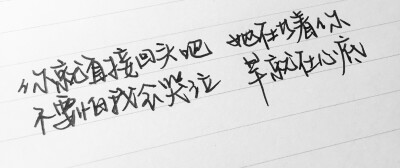 你就直接回头吧 她在着你
不要怕我会哭泣 早就在心底